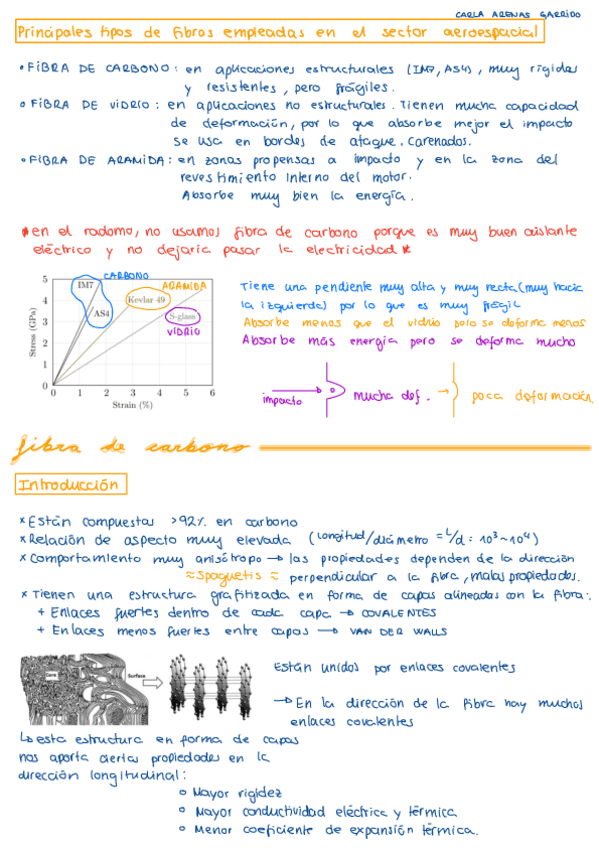 CARLA ARENAS GARRIDO
Principales tipos de fibras empleadas en el sector aeroespacial
• FIBRA DE CARBONO: en aplicaciones estructurales (IM7, AS4), muy rígidas
y resistentes, pero frágiles.
• FIBRA DE VIDRIO: en aplicaciones no estructurales. Tienen mucha capacidad
de deformación, por lo que absorbe mejor el impacto
se usa en bordes de ataque. Carenados.
• FIBRA DE ARAMIDA: en zonas propensas a impacto y en la zona del
revestimiento interno del motor.
Absorbe muy bien la energía.
*en el radomo, no usamos fibra de carbono porque es muy buen aislante
eléctrico y no dejaría pasar la electricidad*
CARBONO
ARAMIDA
VIDRIO
IM7
AS4
Kevlar 49
S-glass
Stress (GPa)
5
4
3
2
1
0
0 1 2 3 4 5 6
Strain (%)
Tiene una pendiente muy alta y muy recta (muy hacia
la izquierda) por lo que es muy frágil
Absorbe menos que el vidrio pero se deforma menos
Absorbe más energía pero se deforma mucho
impacto
mucha def. → poca deformación.
fibra de carbono
Introducción
x Están compuestas >92% en carbono
x Relación de aspecto muy elevada (longitud/diámetro = L/d : 10³~10⁴)
x Comportamiento muy anisótropo → las propiedades dependen de la dirección
≈ Spaguetis ≈ perpendicular a la fibra, malas propiedades.
x Tienen una estructura grafitizada en forma de capas alineadas con la fibra:
+ Enlaces fuertes dentro de cada capa → COVALENTES
+ Enlaces menos fuertes entre capas → VAN DER WALLS
Core
Surface
Están unidos por enlaces covalentes
→ En la dirección de la fibra hay muchos
enlaces covalentes
↳ esta estructura en forma de capas
nos aporta ciertas propiedades en la
dirección longitudinal:
o Mayor rigidez
o Mayor conductividad eléctrica y térmica
o Menor coeficiente de expansión térmica.